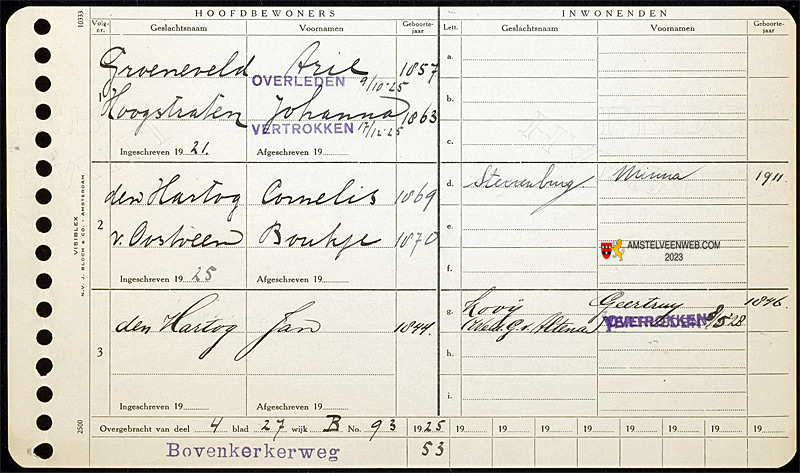 10333
HOOFDBEWONERS
INWONENDEN
Volg-nr. Geslachtsnaam Voornamen Geboorte-jaar
Lett. Geslachtsnaam Voornamen Geboorte-jaar
Groeneveld Arie 1857
OVERLEDEN 9/10-25
Hoogstraten Johanna 1863
VERTROKKEN 17/12-25
Ingeschreven 19 21. Afgeschreven 19
a.
b.
c.
2
den Hartog Cornelis 1869
v. Oostveen Boukje 1870
Ingeschreven 19 25 Afgeschreven 19
d. Sterrenburg Minna 1911
e.
f.
AMSTELVEENWEB.COM
2023
3
den Hartog Jan 1844
Ingeschreven 19 Afgeschreven 19
g. Kooij Geertruy 1846
Wed. G. v. Altena VERTROKKEN 8/5 28
h.
i.
Overgebracht van deel 4 blad 27 wijk B No. 93 1925 19 19 19 19 19 19 19 19
Bovenkerkerweg 53
VISIBLEX
N.V. J. BLOCH & CO. - AMSTERDAM
2500